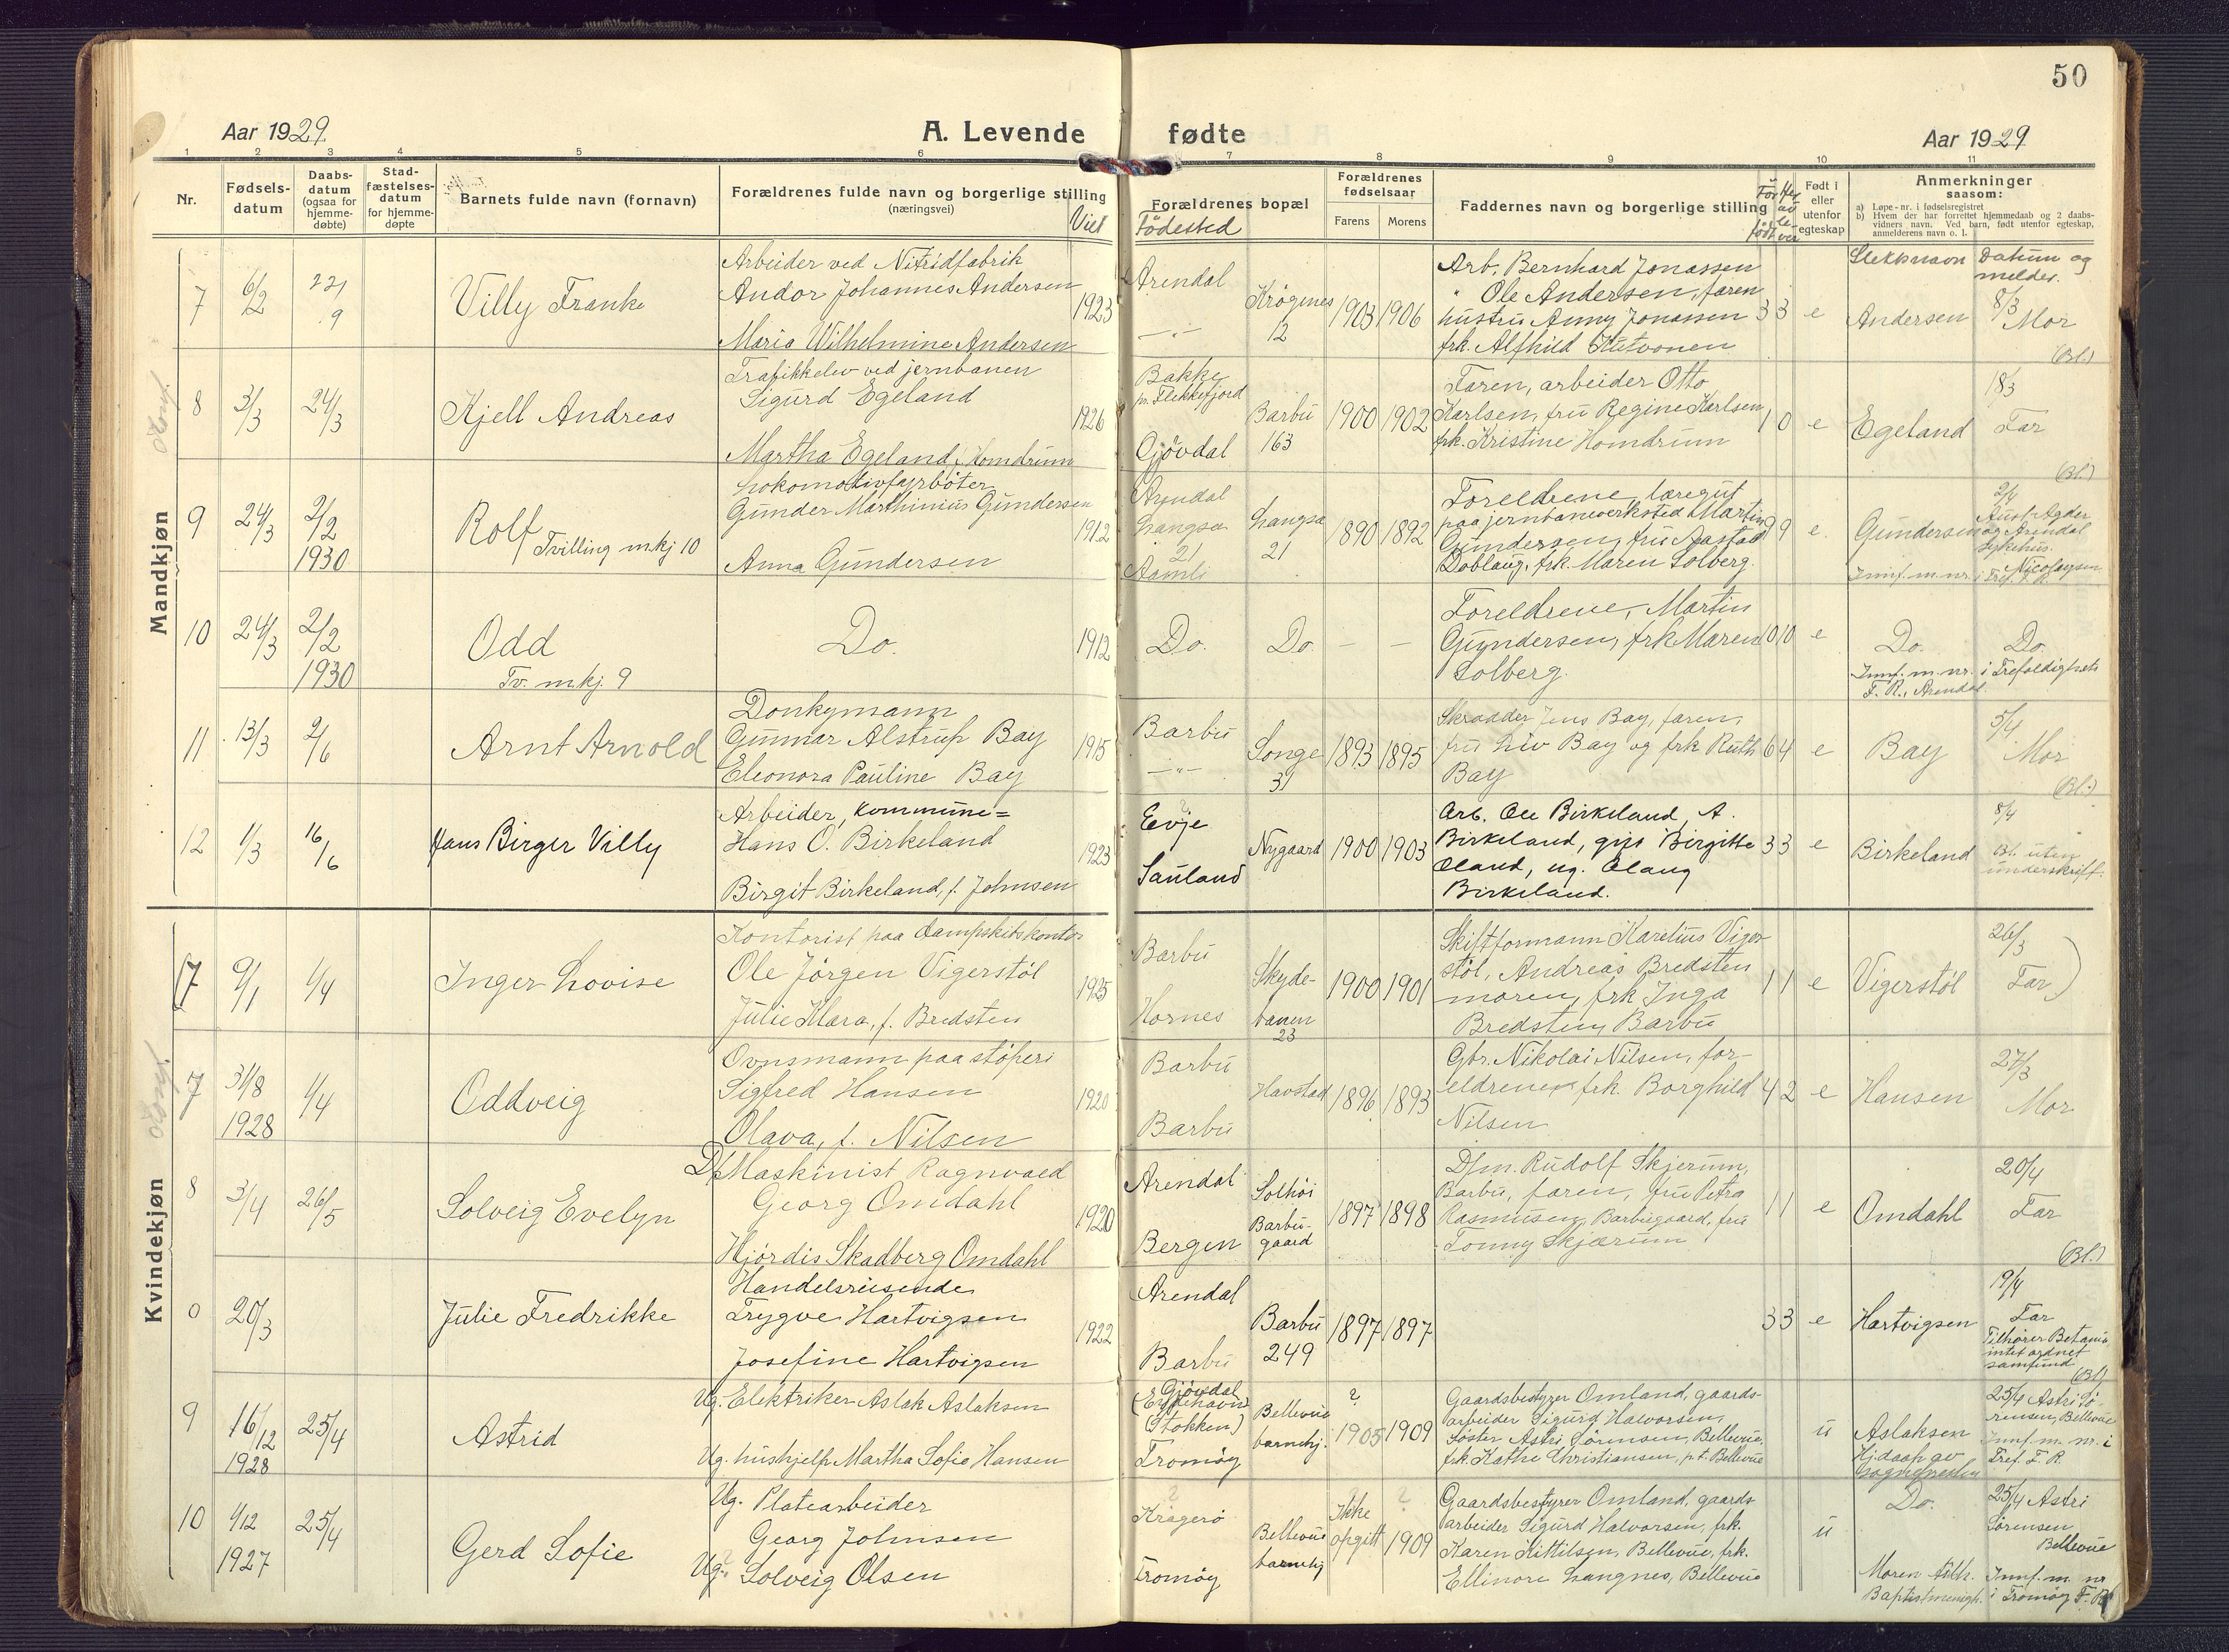 50
Aar 1929.
A. Levende fødte
Aar 1929
1 2 3 4 5 6 7 8 9 10 11
Nr.
Fødsels-
datum
Daabs-
datum
(ogsaa for
hjemme-
døbte)
Stad-
fæstelses-
datum
for hjemme-
døpte
Barnets fulde navn (fornavn)
Forældrenes fulde navn og borgerlige stilling
(næringsvei)
Viet
Forældrenes bopæl
Födested
Forældrenes
fødselsaar
Farens Morens
Faddernes navn og borgerlige stilling
Før
født
Her
av
le-
ver
Født i
eller
utenfor
egteskap
Anmerkninger
saasom:
a) Løpe-nr. i fødselsregistret
b) Hvem der har forrettet hjemmedaab og 2 daabs-
vidners navn. Ved barn, født utenfor egteskap,
anmelderens navn o. l.
Slektsnavn Datum og
melder.
Mandkjøn
7 6/2 22/9 Villy Franke
Arbeider ved Nitridfabrik
Andor Johannes Andersen
Maria Wilhelmine Andersen
1923
Arendal
—"—
Krøgenes
12
1903 1906
Arb. Bernhard Jonassen
" Ole Andersen, faren
hustru Anny Jonassen
frk. Alfhild
3 3 e Andersen
8/3
Mor
(Bl.)
8 3/3 24/3 Kjell Andreas
Trafikkelev ved jernbanen
Sigurd Egeland
Martha Egeland, f. Homdrum
1926
Bakke
pr. Flekkefjord
Gjövdal
Barbu
163
1900 1902
Faren, arbeider Otto
Karlsen, fru Regine Karlsen,
frk. Kristine Homdrum
1 0 e Egeland
18/3
Far
(Bl.)
9 24/3 2/2
1930
Rolf Tvilling m.kj 10
Lokomotivfyrböter
Gunder Marthinius Gundersen
Anna Gundersen
1912
Arendal
Langsæ
21
Aamli
Langsæ
21
1890 1892
Foreldrene, læregut
paa jernbaneverksted Martin
Gundersen, fru Aastad
Doblaug, frk. Maren Solberg.
9 9 e. Gundersen
2/4
Aust-Agder
og Arendal
sykehus.
Nicolaysen
Innf. m. nr. i Tref. F. R.
10 24/3 2/2
1930
Odd
Tv. m.kj. 9
Do.
1912
Do. Do. — —
Foreldrene, Martin
Gundersen, frk Maren
Solberg.
10 10 e Do. Do.
Innf. m. nr. i Trefoldighets
F. R., Arendal.
11 13/3 2/6 Arnt Arnold
Donkymann
Gunnar Alstrup Bay
Eleonora Pauline Bay
1915
Barbu
—"—
Songe
31
1893 1895
Skrædder Jens Bay, faren,
fru Liv Bay og frk Ruth
Bay
6 4 e Bay
5/4
Mor
(Bl.)
12 1/3 16/6 Hans Birger Villy
Arbeider, kommune=
Hans O. Birkeland
Birgit Birkeland, f. Johnsen
1923
Evje
Sauland
Nygaard
1900 1903
Arb. Ole Birkeland, A.
Birkeland, gift Birgitte
Oland, ug. Olaug
Birkeland.
3 3 e Birkeland
8/4
Bl. uten
underskrift.
Kvindekjøn
(7 9/1 1/4 Inger Lovise
Kontorist paa dampskibskontor
Ole Jörgen Vigerstöl
Julie Klara, f. Bredsten
1925
Barbu
Hornes
Skyde-
banen
23
1900 1901
Skiftformann Karelius Viger-
støl, Andreas Bredsten
moren, frk Inga
Bredsten, Barbu
1 1 e Vigerstöl
26/3
Far)
7 31/8
1928
1/4 Oddveig
Ovnsmann paa støperi
Sigfred Hansen
Olava, f. Nilsen
1920
Barbu
Barbu
Havstad
1896 1893
Gbr. Nikolai Nilsen, for-
eldrene, frk. Borghild
Nilsen
4 2 e Hansen
27/3
Mor
8 3/4 26/5 Solveig Evelyn
D/Maskinist Ragnvald
Georg Omdahl
Hjördis Skadberg Omdahl
1920
Arendal
Bergen
Solhöi
Barbu-
gaard
1897 1898
D/m. Rudolf Skjerum,
Barbu, faren, fru Petra
Rasmussen, Barbugaard, fru
Tonny Skjærum
1 1 e Omdahl
20/4
Far
(Bl.)
0 20/3 Julie Fredrikke
Handelsreisende
Trygve Hartvigsen
Josefine Hartvigsen
1922
Arendal
Barbu
Barbu
249
1897 1897
3 3 e Hartvigsen
19/4
Far
Tilhører Betania
intet ordnet
samfund
(Bl.)
9 16/12
1928
25/4 Astrid
Ug. Elektriker Aslak Aslaksen
Ug. hushjelp Martha Sofie Hansen
Gjövdal
(Eydehavn)
(Stokken)
Tromöy
Bellevue
barnehj.
?
1905 1909
Gaardsbestyrer Omland, gaards-
arbeider Sigurd Halvorsen,
Söster Astri Sörensen, Bellevue,
frk. Käthe Christiansen, p.t. Bellevue
u Aslaksen
Hj.daap av
sognepresten
25/4 Astri Sö-
rensen, Bellevue
Innf. m. nr. i
Tref. F. R.
10 4/12
1927
25/4 Gerd Sofie
Ug. Platearbeider
Georg Johnsen
Ug. Solveig Olsen
Kragerö
Tromöy
Bellevue
barnehj
Ikke
opgitt
1909
Gaardsbestyrer Omland, gaards
arbeider Sigurd Halvorsen, frk.
Karen Kittilsen, Bellevue, frk.
Ellinore Langnes, Bellevue
u Do.
25/4 Astri
Sörensen
Bellevue
Moren tilh.
Baptistmenigh.
Innf. m. nr
i Tromöy F. R.